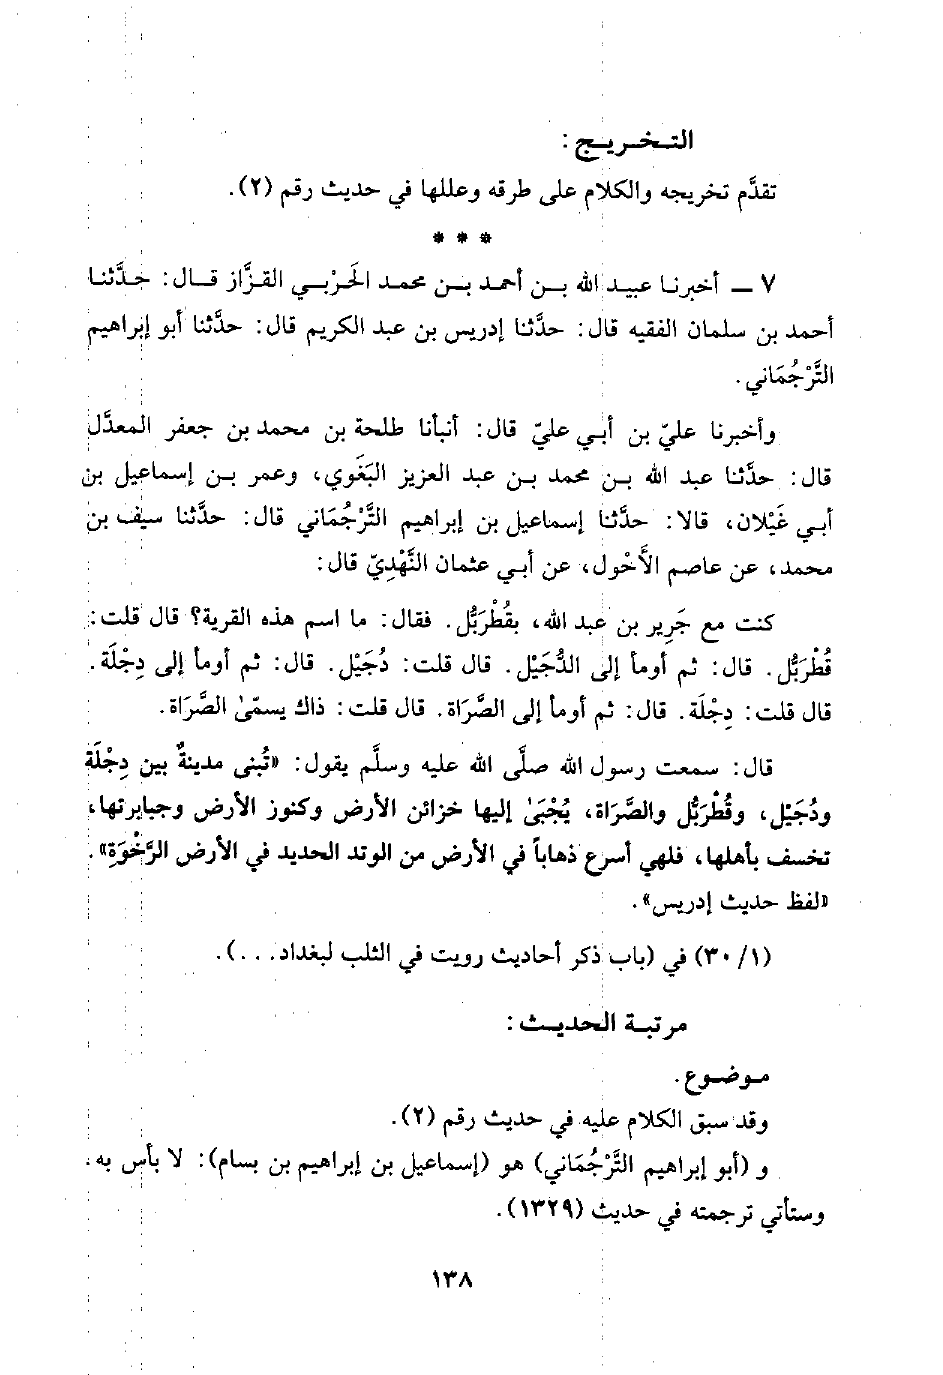 التـخـريـج :
تقدَّم تخريجه والكلام على طرقه وعللها في حديث رقم (٢).
* * *
٧ ـ أخبرنا عبيد الله بـن أحمد بـن محمد الحَرْبي القزَّاز قـال: حدَّثنا
أحمد بن سلمان الفقيه قال: حدَّثنا إدريس بن عبد الكريم قال: حدَّثنا أبو إبراهيم
التَّرْجُمَاني.
وأخبرنا عليّ بن أبي عليّ قال: أنبأنا طلحة بن محمد بن جعفر المعدَّل
قال: حدَّثنا عبد الله بـن محمد بـن عبد العزيز البَغَوي، وعمر بـن إسماعيل بن
أبـي غَيْلان، قالا: حدَّثنا إسماعيل بن إبراهيم التَّرْجُمَاني قال: حدَّثنا سيف بن
محمد، عن عاصم الأَحْول، عن أبـي عثمان النَّهْدِيّ قال:
كنت مع جَرِير بن عبد الله، بقُطْرَبُّل. فقال: ما اسم هذه القرية؟ قال قلت:
قُطْرَبُّل. قال: ثم أومأ إلى الدُّجَيْل. قال قلت: دُجَيْل. قال: ثم أومأ إلى دِجْلَة.
قال قلت: دِجْلَة. قال: ثم أومأ إلى الصَّرَاة. قال قلت: ذاك يسمّىٰ الصَّرَاة.
قال: سمعت رسول الله صلَّى الله عليه وسلَّم يقول: «تُبنى مدينةٌ بين دِجْلَة
ودُجَيْل، وقُطْرَبُّل والصَّرَاة، يُجْبَىٰ إليها خزائن الأرض وكنوز الأرض وجبابرتها،
تخسف بأهلها، فلهي أسرع ذهاباً في الأرض من الوتد الحديد في الأرض الرَّخْوَةِ».
«لفظ حديث إدريس».
(١/ ٣٠) في (باب ذكر أحاديث رويت في الثلب لبغداد. . .).
مرتبـة الحديـث :
مـوضـوع.
وقد سبق الكلام عليه في حديث رقم (٢).
و (أبو إبراهيم التَّرْجُمَاني) هو (إسماعيل بن إبراهيم بن بسام): لا بأس به.
وستأتي ترجمته في حديث (١٣٢٩).
١٣٨